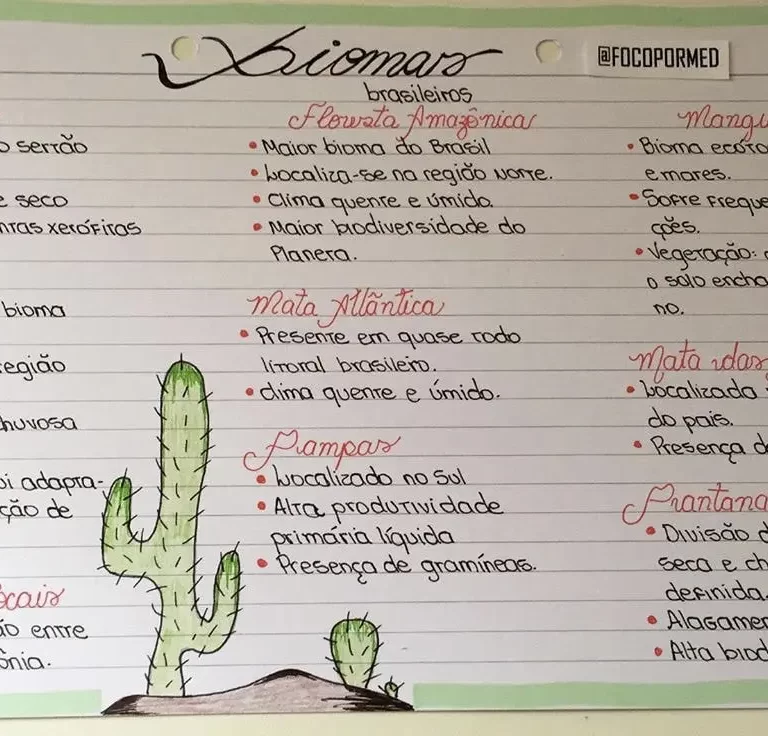 biomas
@FOCOPORMED
brasileiros
o sertão
e seco
ntas xerófitas
bioma
região
huvosa
oi adapta-
ção de
ocais
ão entre
ônia.
Floresta Amazônica
• Maior bioma do Brasil
• Localiza-se na região Norte.
• Clima quente e úmido.
• Maior biodiversidade do
Planeta.
Mata Atlântica
• Presente em quase todo
litoral brasileiro.
• Clima quente e úmido.
Pampas
• Localizado no Sul
• Alta produtividade
primária líquida
• Presença de gramíneas.
Mangu
• Bioma ecóto
e mares.
• Sofre freque
ções.
• Vegetação:
o solo encha
no.
Mata dos
• Localizada
do país.
• Presença de
Pantana
• Divisão d
seca e ch
definida.
• Alagamen
• Alta biod